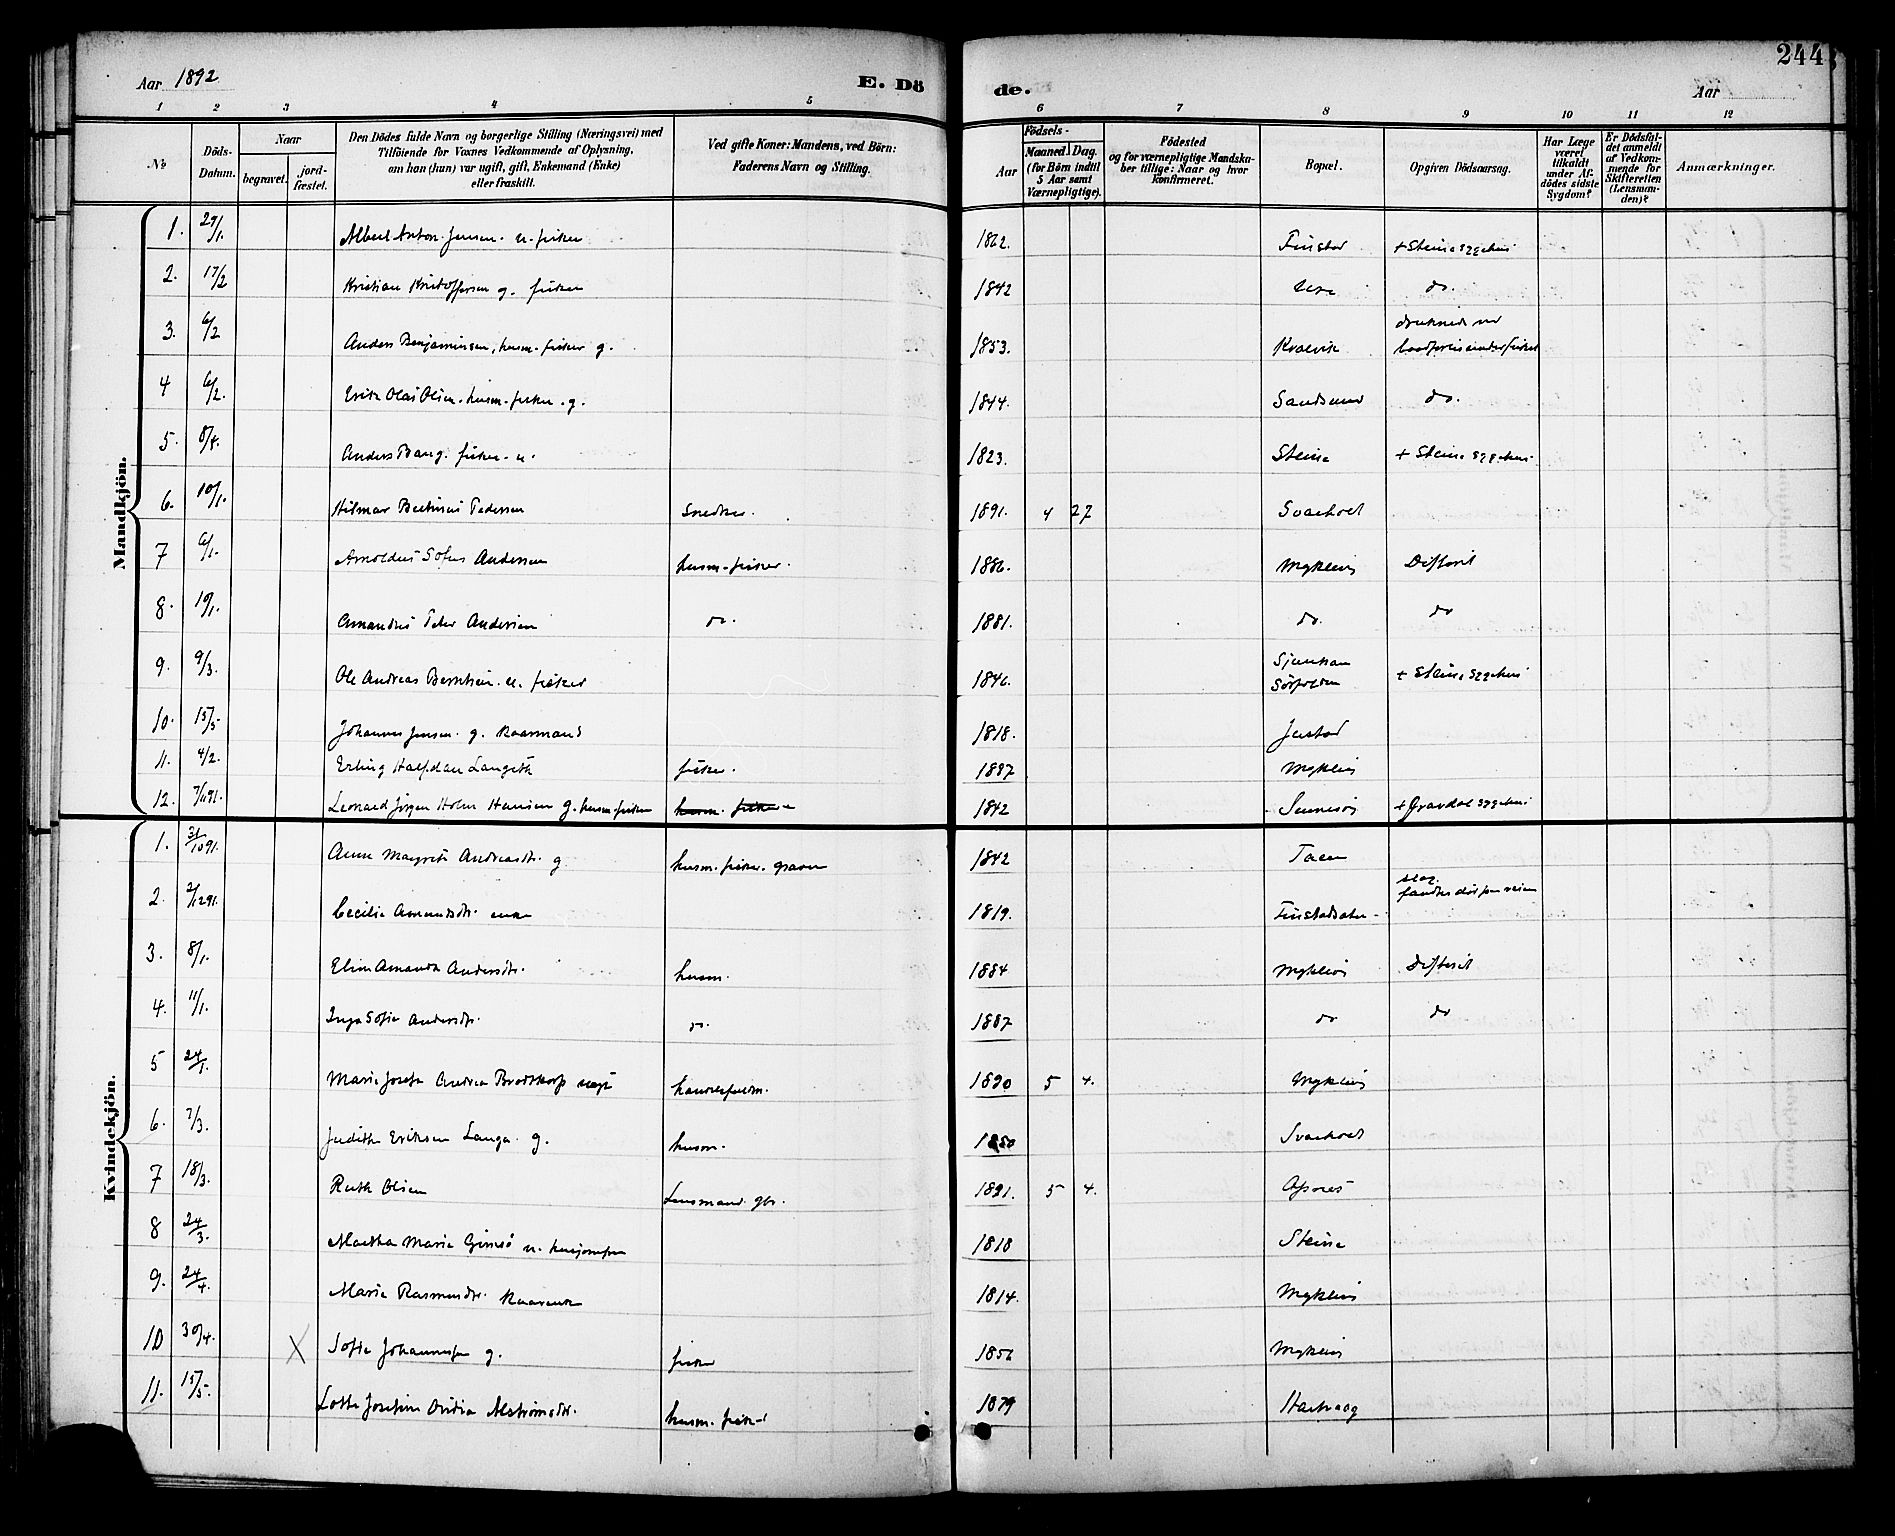 244
Aar 1892
E. Dö
de.
Aar
1 2 3 4 5 6 7 8 9 10 11 12
No
Döds-Datum.
Naar
begravet.
jord-fæstet.
Den Dödes fulde Navn og borgerlige Stilling (Næringsvei) med
Tilföiende for Voxnes Vedkommende af Oplysning,
om han (hun) var ugift, gift, Enkemand (Enke)
eller fraskilt.
Ved gifte Koner: Mandens, ved Börn:
Faderens Navn og Stilling.
Födsels-
Aar
Maaned. Dag.
(for Börn indtil
5 Aar samt
Værnepligtige).
Födested
og for værnepligtige Mandska-
ber tillige: Naar og hvor
konfirmeret.
Bopæl.
Opgiven Dödsaarsag.
Har Læge
været
tilkaldt
under Af-
dödes sidste
Sygdom?
Er Dödsfal-
det anmeldt
af Vedkom-
mende for
Skifteretten
(Lensman-
den)?
Anmærkninger.
Mandkjön.
1. 29/1. Albert Anton Jensen. u. fisker 1862. Finstad + Steine sygehus
2. 17/2 Kristian Kristoffersen g. fisker 1842 do.
3. 6/2 Anders Benjaminsen, husm. fisker g. 1853. Kvalvik druknede ved baadforlis under fisket
4 6/2. Erik Olai Olsen. husm. fisker. g. 1844. Sandsund do.
5. 8/4. Anders Bang. fisker. u. 1823. Steine + Steine sygehus.
6. 10/1. Hilmar Pedersen Snedker. 1891. 4 27 Svarholt
7 6/1. Arnoldus Sofus Andersen husm. fisker. 1886. Myklevig Difterit
8. 19/1. Amandus Peter Andersen do. 1881. do. do
9. 9/3. Ole Andreas Berntsen. u. fisker 1846. Sörfolden + Steine sygehus
10. 15/5. Johannes Jensen. g. Kaarmand 1818. Justad
11. 4/2. Erling Halfdan Langseth fisker. 1887 Myklevig
12. 7/11 91. Leonard Jörgen Holm Hansen g. husm. fisker husm. fisker 1842 Sennesvig + Gravdal sygehus
Kvindekjön.
1. 31/10 91. Anne Margrete Andreasdtr. g husm. fisker. 1842 Taen
2. 2/12 91. Cecilia Amundsdtr. enke 1819. slag. fandtes död paa veien
3. 8/1. Elen Amanda Andersdtr. husm. 1884 Myklevig Difterit
4. 11/1. Inga Sofie Andersdtr. do. 1887 do do
5 24/1. Marie Josefa Andrea Brodtkorp handelsfuldm. 1890 5 4. Myklevig
6. 7/3. Judith Eriksen Langa. g. husm. 1850 Svarholt
7 18/3. Ruth Olsen Lensmand. gbr. 1891. 5 4. Offersö
8 24/3. Martha Maria Gimsö u. 1818 Steine
9. 24/4. Maria Rasmusdtr. Kaarenke 1814. Myklevig
10 30/4. X Sofie g. fisker 1856 Myklevig
11. 15/5. Lotte Josefine Ovidia Alströmsdtr. husm. fisker 1879 Hartvaag